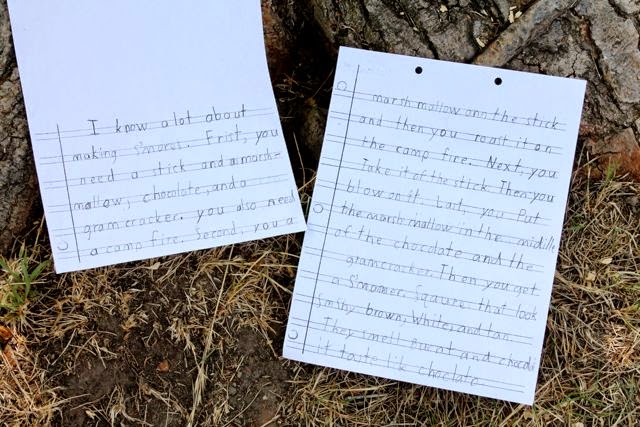 I know alot about
making s'mores. Frist, you
need a stick and a marsh-
mallow, chocolate, and a
gram cracker. you also need
a camp fire. Second, you a
marsh mallow onn the stick
and then you roast it on
the camp fire. Next, you
Take it of the stick. Then you
blow on it. Last, you Put
the marsh mallow in the middle
of the chocolate and the
gram cracker. Then you get
a S'mores. Sqaure that look
brown, White, and tan
They smell and
it taste lik chocolate